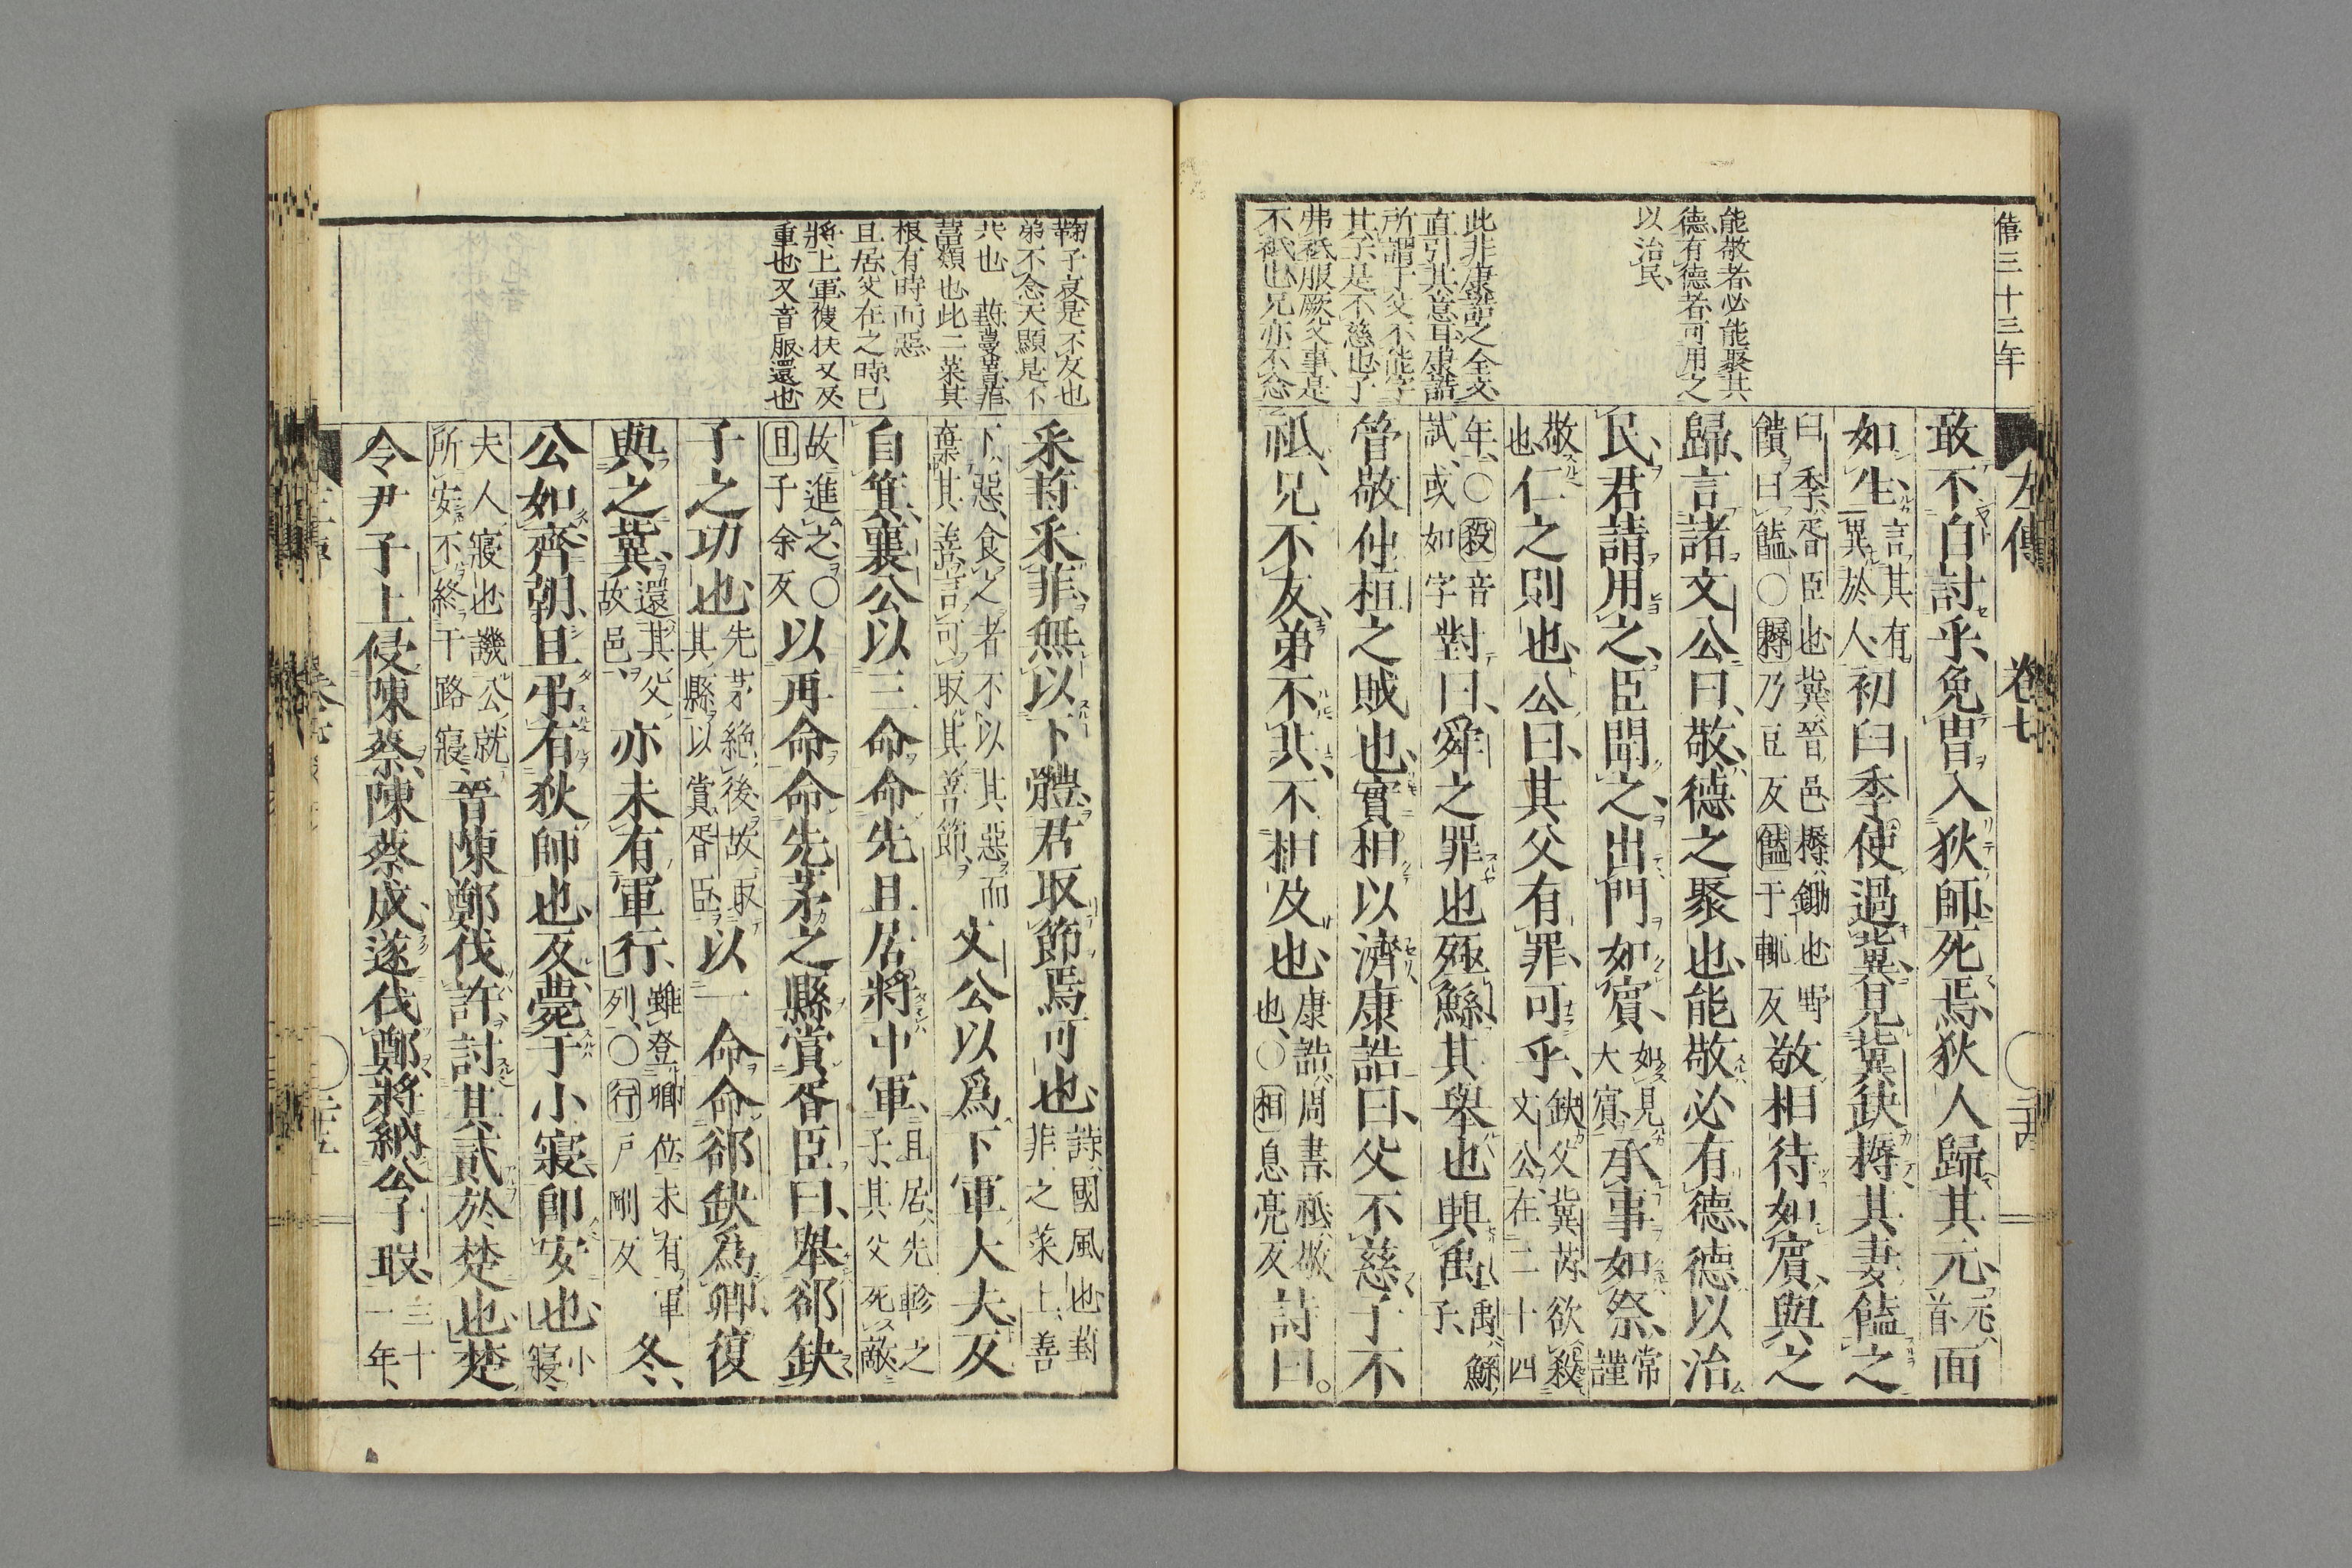 僖三十三年
左傳 卷七
能敬者必能聚其
德有德者可用之
以治民
此非康誥之全文
直引其意耳康誥
所謂于父不能字
其子是不慈也子
弗祗服厥父事是
不祗也兄亦不念
敢不自討乎免冑入狄師死焉狄人歸其元元首面
如生言其有異於人初臼季使過冀見冀缺耨其妻饁之
臼季胥臣也冀晉邑耨鋤也野饋曰饁○耨乃豆反饁于輒反敬相待如賓與之
歸言諸文公曰敬德之聚也能敬必有德德以治
民君請用之臣聞之出門如賓如見大賓承事如祭常謹
敬也仁之則也公曰其父有罪可乎缺父冀芮欲殺文公在二十四
年○殺音試或如字對曰舜之罪也殛鯀其舉也興禹禹鯀子
管敬仲桓之賊也實相以濟康誥曰父不慈子不
祗兄不友弟不共不相及也康誥周書祗敬也○相息亮反詩曰
鞠子哀是不友也
弟不念天顯是不
共也 葑蔓菁菲
葍類也此二菜其
根有時而惡
且居父在之時已
將上軍復扶又反
重也又音服還也
采葑采菲無以下體君取節焉可也詩國風也葑菲之菜上善
下惡食之者不以其惡而棄其善言可取其善節文公以爲下軍大夫反
自箕襄公以三命命先且居將中軍且居先軫之子其父死敵
故進之○且子余反以再命命先茅之縣賞胥臣曰舉郤缺
子之功也先茅絶後故取其縣以賞胥臣以一命命郤缺爲卿復
與之冀還其父故邑亦未有軍行雖登卿位未有軍列○行戶剛反冬
公如齊朝且弔有狄師也反薨于小寢即安也小寢
夫人寢也譏公就所安不終于路寢晉陳鄭伐許討其貳於楚也楚
令尹子上侵陳蔡陳蔡成遂伐鄭將納公子瑕三十一年